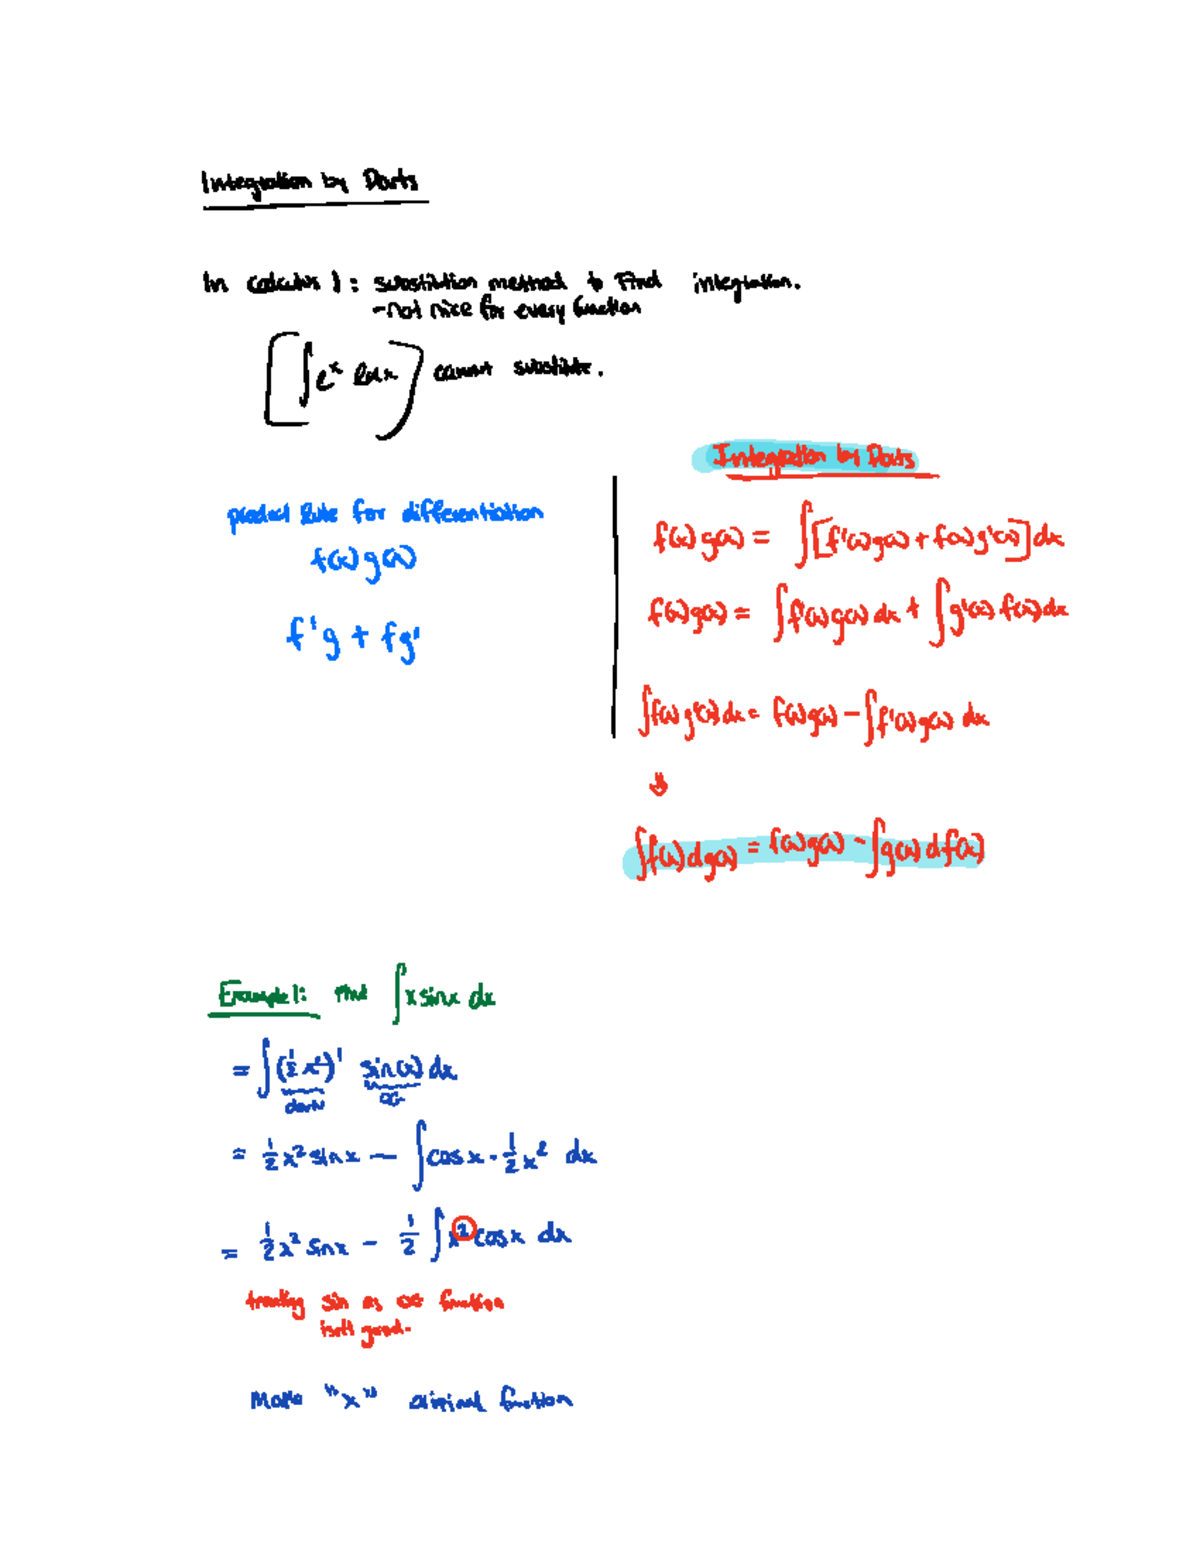 Integration by Parts
In calculus 1: substitution method to find integration.
-not nice for every function
[∫eˣ lnx] cannot substitute.
product Rule for differentiation
f(x)g(x)
f'g + fg'
Integration by Parts
f(x)g(x) = ∫[f'(x)g(x) + f(x)g'(x)]dx
f(x)g(x) = ∫f'(x)g(x)dx + ∫g'(x)f(x)dx
∫f(x)g'(x)dx = f(x)g(x) - ∫f'(x)g(x)dx
↓
∫f(x)dg(x) = f(x)g(x) - ∫g(x)df(x)
Example 1: Find ∫x sinx dx
= ∫(½x²)' sin(x) dx
deriv OG
= ½x² sinx - ∫cosx · ½x² dx
= ½x² sinx - ½∫x² cosx dx
treating sin as OG function
isn't good.
Make "x" original function